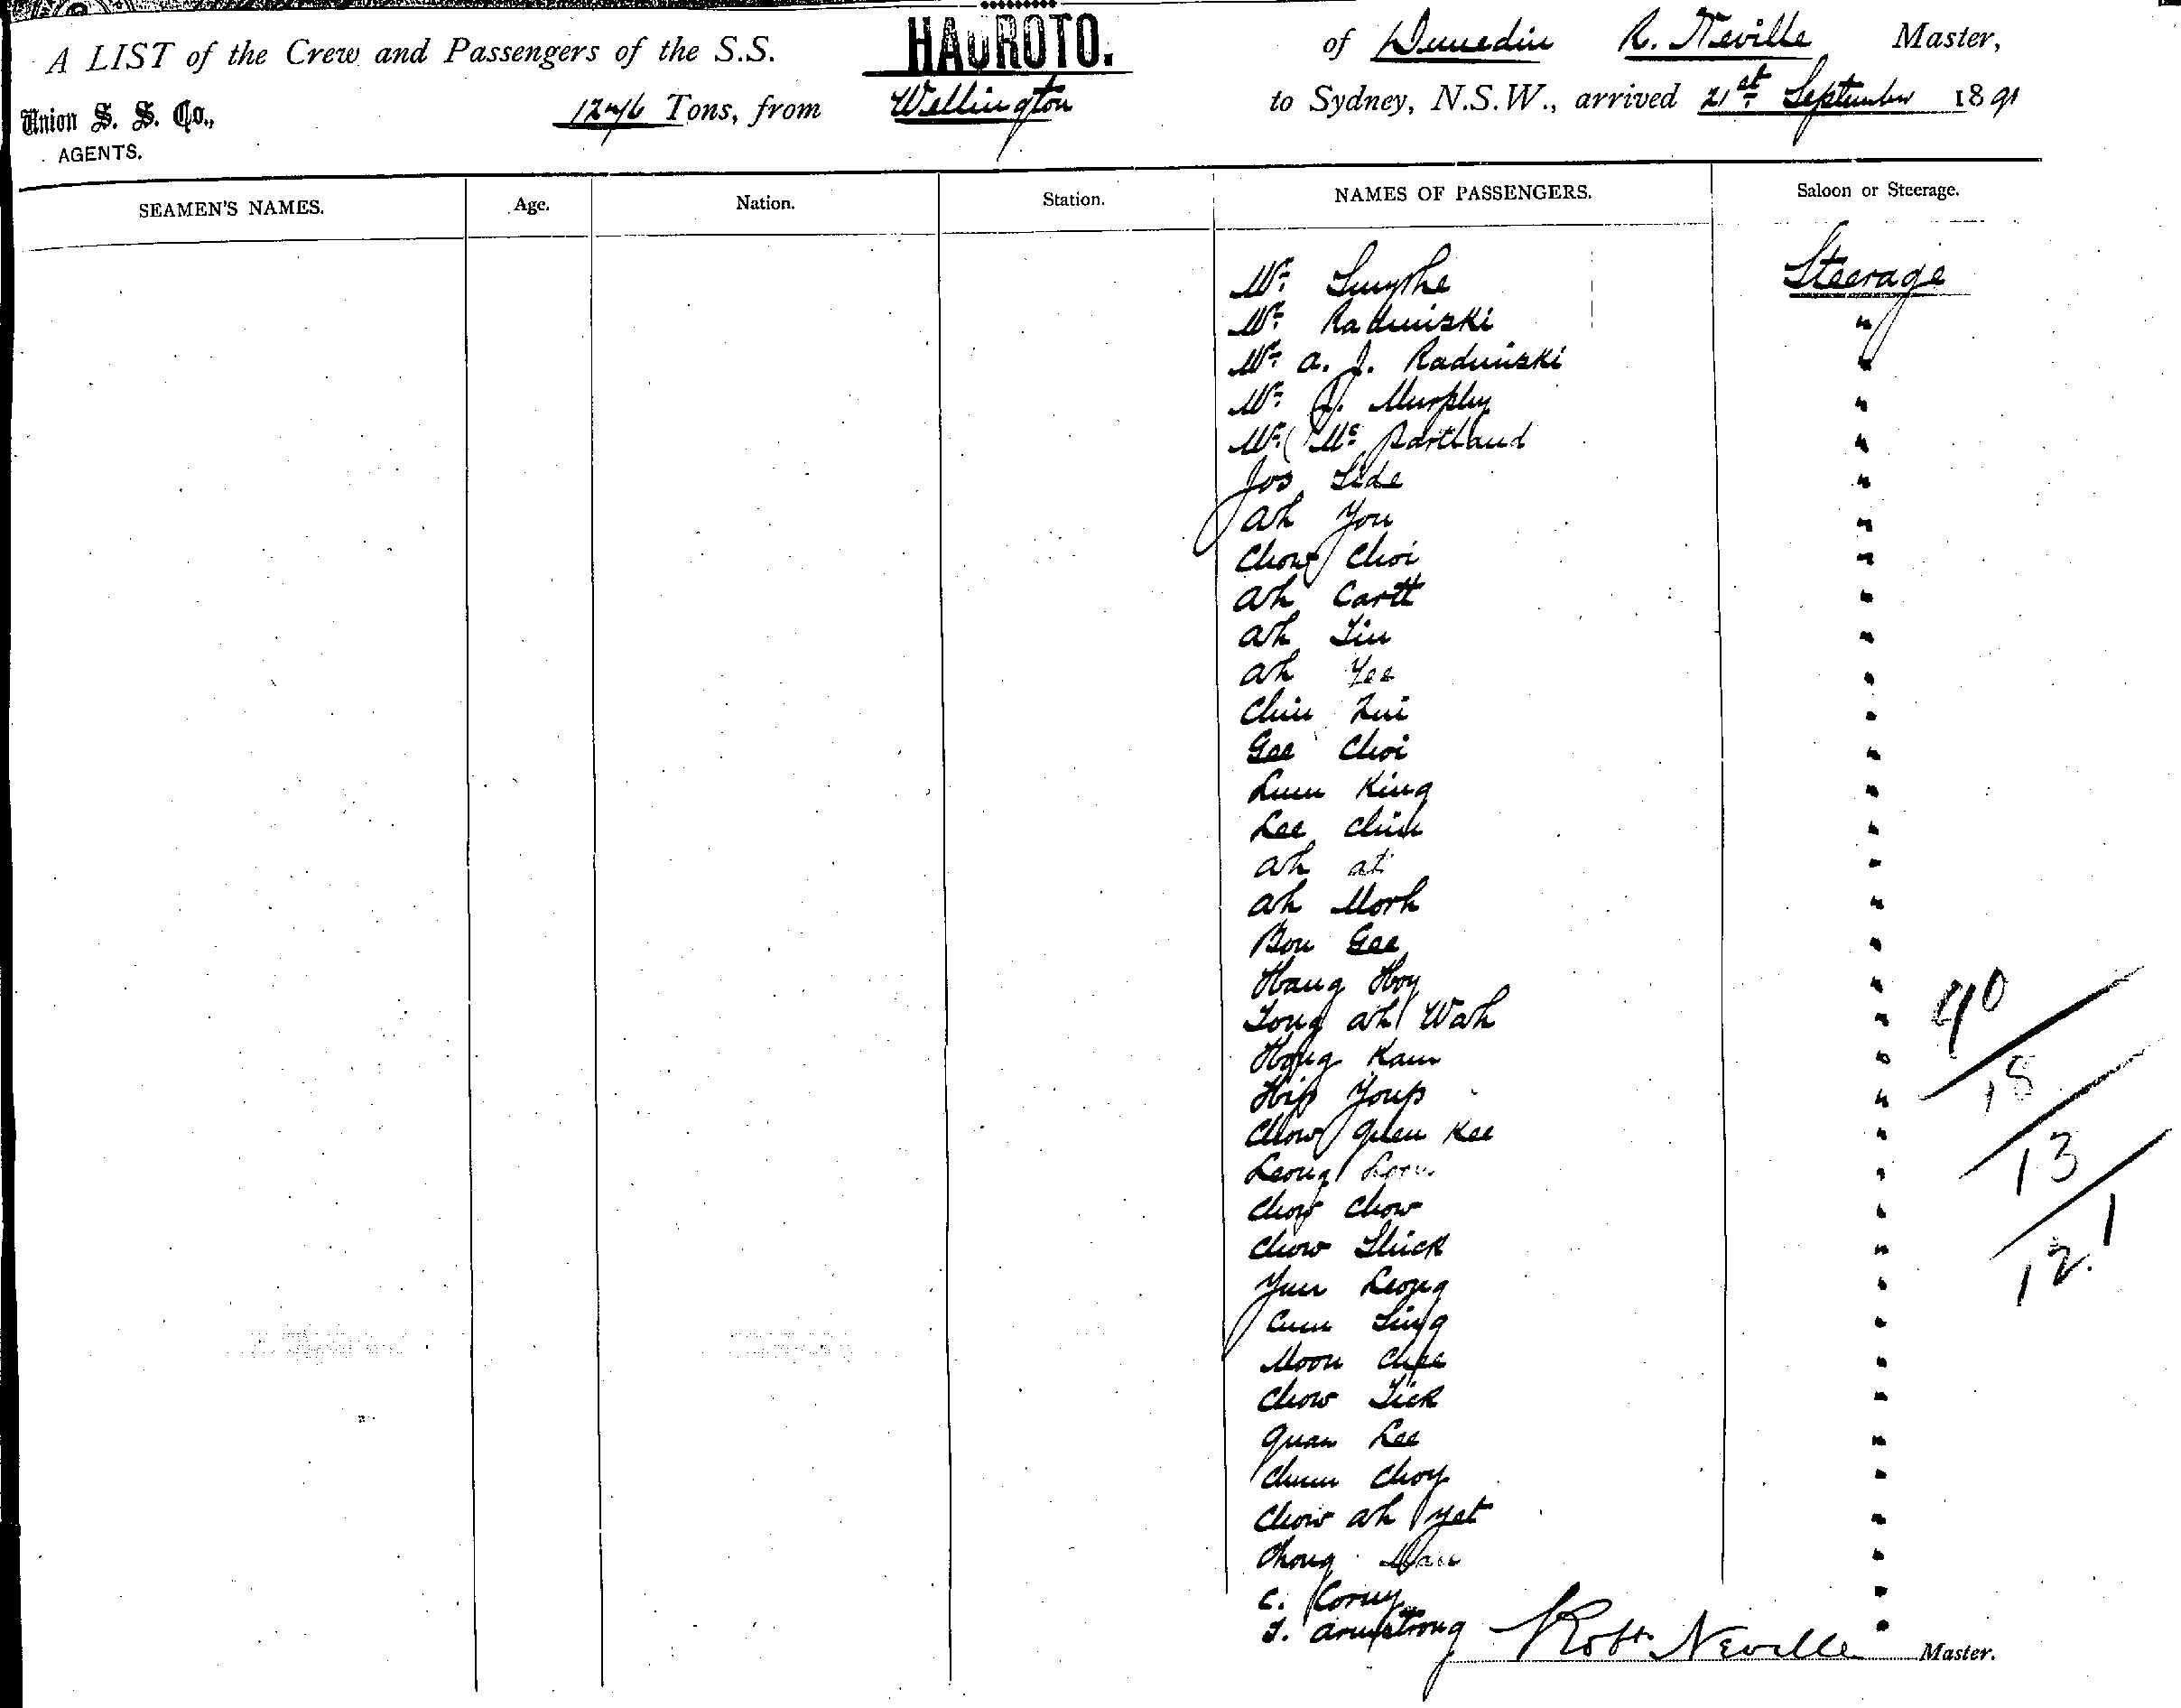 A LIST of the Crew and Passengers of the S.S. HAUROTO. of Dunedin R. Neville Master,
Union S. S. Co., 1276 Tons, from Wellington to Sydney, N.S.W., arrived 21st September 1891
AGENTS.
SEAMEN'S NAMES. Age. Nation. Station. NAMES OF PASSENGERS. Saloon or Steerage.
Mr Smythe Steerage
Mr Radinski "
Mr A. J. Radinski "
Mr J. Murphy "
Mr Mc Partland "
Jos Side "
Ah You "
Chow Choi "
Ah Cartt "
Ah Tin "
Ah Yee "
Chin Kui "
Gee Choi "
Lum King "
Lee Chin "
Ah at "
Ah Mork "
Bon Gee "
Hang Hoy "
Tong Ah Wah "
Hong Kam "
Hip Youp "
Chow Quen Kee "
Leong "
Chow Chow "
Chow Shick "
Yun Leong "
Cum Sing "
Moon Chee "
Chow Tick "
Quan Lee "
Chum Choy "
Chow Ah Yet "
Chong "
C. "
T. Armstrong "
40
18
13
1
12.
Robt. Neville Master.